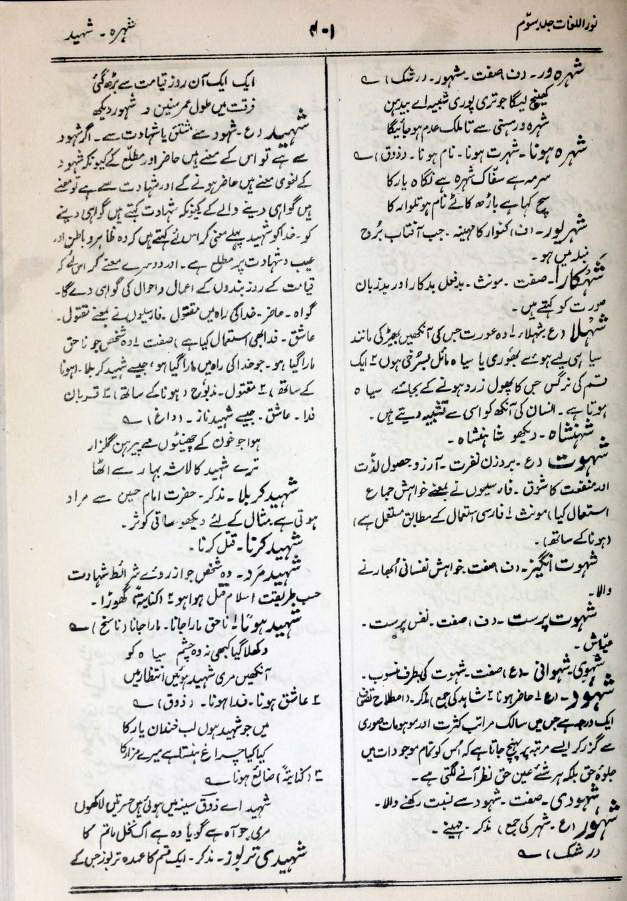 نور اللغات جلد سوّم
۴۰۱
شہرہ ۔ شہید
شہرہ ور۔ (ف) صفت۔ مشہور۔ (رشک) ؎
کھینچ لیگا جو تری پوری شبیہ اے بیدہن
شہرہ ور ہستی سے تا ملک عدم ہو جائیگا
شہرہ ہونا۔ شہرت ہونا۔ نام ہونا۔ (ذوق) ؎
سرمہ ہے سفّاک شہرہ ہے نگاہ یار کا
سچ کہا ہے باڑھ کاٹے نام ہو تلوار کا
شہریور۔ (ف) کنوار کا مہینہ۔ جب آفتاب بُرج
میں ہو۔
صفت۔ مونث۔ بدفعل بدکار اور بدزبان
عورت کو کہتے ہیں۔
شہلا (ع) شہلا۔ ۱ وہ عورت جس کی آنکھیں بھیڑ کی مانند
سیاہی لیے ہوئے بھوری یا سیاہ مائل بسرخی ہوں ۲ ایک
قسم کی نرگس جس کا پھول زرد ہونے کے بجائے سیاہ
ہوتا ہے۔ انسان کی آنکھ کو اسی سے تشبیہ دیتے ہیں۔
شہنشاہ۔ دیکھو شاہنشاہ۔
شہوت (ع) بر وزن نفرت۔ آرزو حصول لذّت
اور منفعت کا شوق۔ فارسیوں نے بمعنے خواہش جماع
استعمال کیا) مونث ۱ فارسی استعمال کے مطابق مستعمل ہے۔
(ہونا کے ساتھ)۔
شہوت انگیز۔ (ف) صفت۔ خواہش نفسانی اُبھارنے
والا۔
شہوت پرست۔ (ف) صفت۔ نفس پرست۔
عیّاش۔
شہوی۔ شہوانی۔ (ع) صفت۔ شہوت کی طرف منسوب۔
شہود۔ (ع) ۱ حاضر ہونا ۲ شاہد کی جمع) مذکر۔ (اصطلاح تصوّف)
ایک درجہ ہے جس میں سالک مراتب کثرت اور موہومات صوری
سے گزر کر ایسے مرتبہ پر پہنچ جاتا ہے کہ اُس کو تمام موجودات میں
جلوۂ حق بلکہ ہر شئے عین حق نظر آنے لگتی ہے۔
شہودی۔ صفت۔ شہود سے نسبت رکھنے والا۔
شہور (ع) شہر کی جمع) مذکر۔ مہینے۔
(رشک) ؎
ایک ایک آن روز قیامت سے بڑھ گئی
فرقت میں طول عمر سنین و شہور دیکھ
شہید (ع)۔ شہود سے مشتق یا شہادت سے۔ اگر شہود
سے ہے تو اس کے معنے ہیں حاضر اور مطّلع کے کیونکہ شہود
کے لغوی معنے ہیں حاضر ہونے کے اور شہادت سے ہے تو معنے
ہیں گواہی دینے والے کے کیونکہ شہادت کہتے ہیں گواہی دینے
کو۔ خدا کو شہید پہلے معنی کر اس لئے کہتے ہیں کہ وہ ظاہر و باطن اور
غیب و شہادت پر مطلع ہے۔ اور دوسرے معنے کر اس لئے کہ
قیامت کے روز بندوں کے اعمال و احوال کی گواہی دے گا۔
گواہ۔ حاضر۔ خدا کی راہ میں مقتول۔ فارسیوں نے بمعنے مقتول۔
عاشق۔ فدا بھی استعمال کیا ہے) صفت ۱ وہ شخص جو ناحق
مارا گیا ہو۔ جو خدا کی راہ میں مارا گیا ہو؛ جیسے شہید کربلا۔ (ہونا
کے ساتھ) ۲ مقتول۔ مذبوح (ہونا کے ساتھ) ۳ قربان
فدا۔ عاشق۔ جیسے شہید ناز۔ (داغ) ؎
ہوا جو خون کے چھینٹوں سے پیرہن گلزار
ترے شہید کا لاشہ بہار سے اٹھا
شہید کربلا۔ مذکر۔ حضرت امام حسین سے مراد
ہوتی ہے مثال کے لئے دیکھو ساقی کوثر۔
شہید کرنا۔ قتل کرنا۔
شہید مَرد۔ وہ شخص جو از روئے شرائط شہادت
حسب طریقت اسلام قتل ہوا ہو ۲ (کنایۃً) گھوڑا۔
شہید ہونا ۱ ناحق مارا جانا۔ مارا جانا (ناسخ) ؎
دکھلا گیا کبھی نہ وہ چشم سیاہ کو
آنکھیں مری شہید ہوئیں انتظار میں
۲ عاشق ہونا۔ فدا ہونا۔ (ذوق) ؎
میں جو شہید ہوں لب خندان یار کا
کیا کیا چراغ ہنستا ہے میرے مزار کا
۳ (کنایۃً) ضائع ہونا ؎
شہید اے ذوق سینہ میں ہوئی ہیں حسرتیں لاکھوں
مری جو آہ ہے گویا وہ ہے اک نخل ماتم کا
شہیدی تربوز۔ مذکر۔ ایک قسم کا عمدہ تربوز جس کے